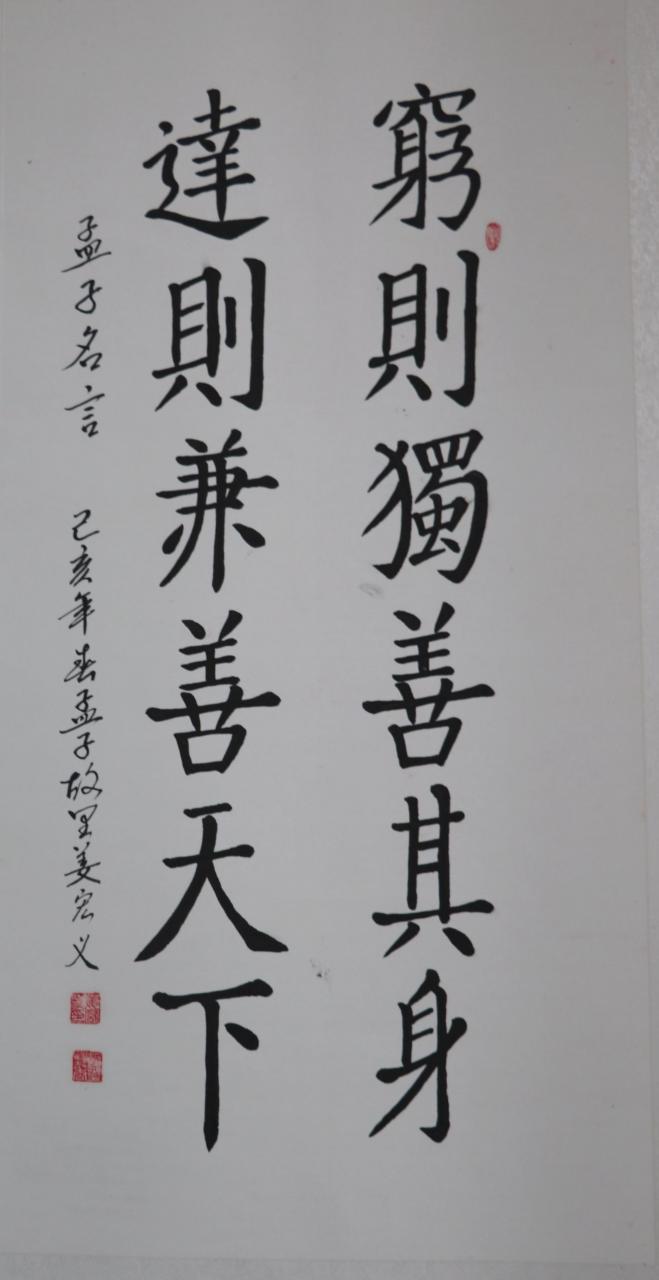 窮則獨善其身
達則兼善天下
孟子名言 己亥年春孟子故里姜宏义